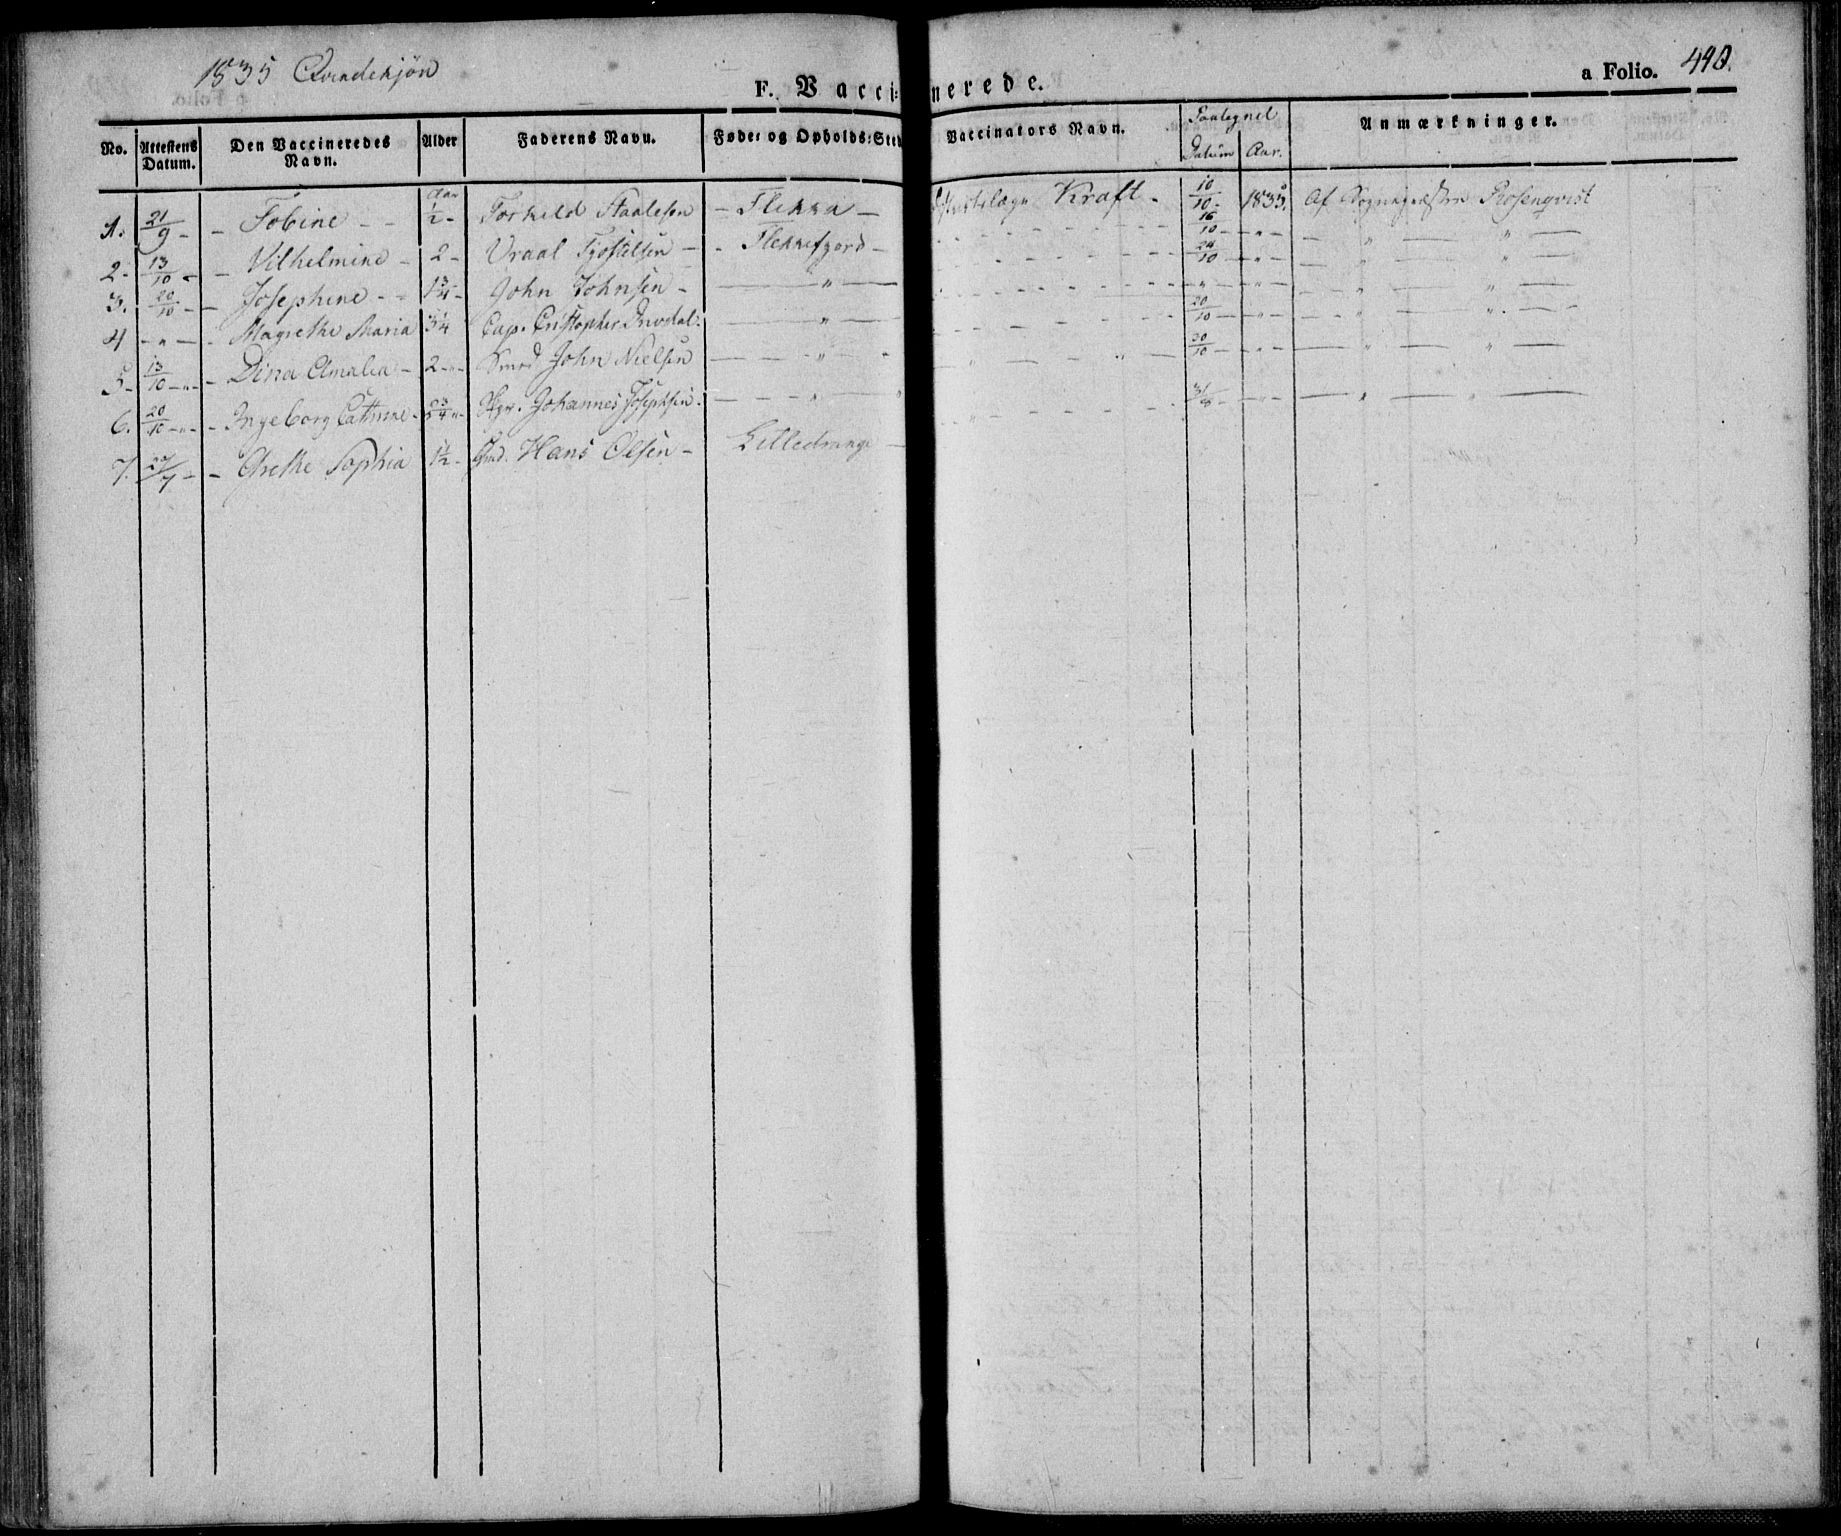 1835 Qvindekjøn
F. Vaccinerede.
a Folio. 440.
No. | Attestens Datum. | Den Vaccineredes Navn. | Alder | Faderens Navn. | Føde: og Opholds:Sted | Vaccinators Navn. | Paategnet Datum | Aar. | Anmærkninger.
Aar
1. | 21/9 - | - Tobine - - | 1/2 - | Torkild Staalesen | - Flekka - | Kraft - | 10/10 - | 1835. | Af Sognepræsten Rosenqvist
2 - | 13/10 - | - Vilhelmine - | 2 - | Vraal Tjostelsen - | - Flekkefjord - | - - - | 16/10 - | - " - | - " - " -
3. | 20/10 - | - Josephine - - | 1 3/4 - | John Johnsen - | - " - | - - - | 24/10 - | - " - | - " - " -
4 | - " - | - Magrethe Maria | 3 1/4 | Cap. Cristopher | - " - | - - - | - " - | - " - | - " - " -
5 - | 13/10 - " - | - Dina Amalia - | 2 - " - | Smed John Nielsen | - " - | - - - | 20/10 - | - " - | - " - " -
6. | 20/10 - " - | - Ingeborg Cathrine - | 2 3/4 " - | Johannes Josephsen . | - " - | - " - " - | 30/10 - | - " - | - " - " -
7. | 27/7 - | - Grethe Sophia | 1 1/2 - | Gmd. Hans Olsen - | Lilledrange - | - " - | 31/8 - | - " - | - " - " -